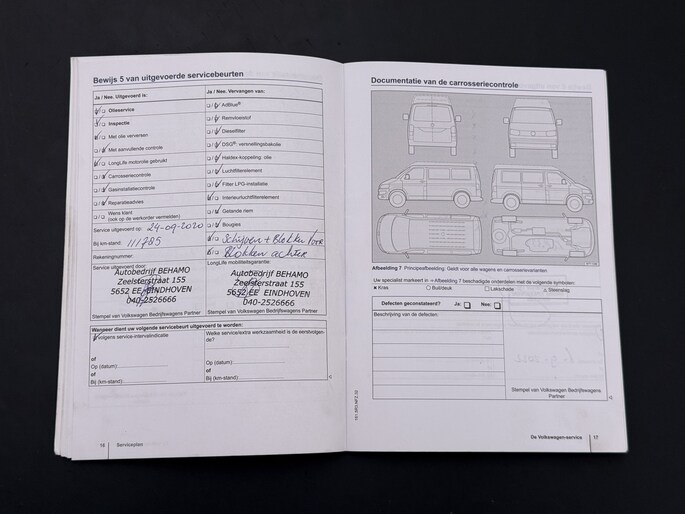 Bewijs 5 van uitgevoerde servicebeurten
Ja / Nee. Uitgevoerd is:
Olieservice
Inspectie
Met olie verversen
Met aanvullende controle
LongLife motorolie gebruikt
Carrosseriecontrole
Gasinstallatiecontrole
Reparatieadvies
Wens klant
(ook op de werkorder vermelden)
Service uitgevoerd op: 24-09-2020
Bij km-stand: 111785
Rekeningnummer:
Service uitgevoerd door:
Autobedrijf BEHAMO
Zeelsterstraat 155
5652 EE EINDHOVEN
040-2526666
Stempel van Volkswagen Bedrijfswagens Partner
Ja / Nee. Vervangen van:
AdBlue®
Remvloeistof
Dieselfilter
DSG®: versnellingsbakolie
Haldex-koppeling: olie
Luchtfilterelement
Filter LPG-installatie
Interieurluchtfilterelement
Getande riem
Bougies
Schijven + Blokken voor
Blokken achter
LongLife mobiliteitsgarantie:
Autobedrijf BEHAMO
Zeelsterstraat 155
5652 EE EINDHOVEN
040-2526666
Stempel van Volkswagen Bedrijfswagens Partner
Wanneer dient uw volgende servicebeurt uitgevoerd te worden:
volgens service-intervalindicatie
of
Op (datum):
of
Bij (km-stand):
Welke service/extra werkzaamheid is de eerstvolgende?
Op (datum):
of
Bij (km-stand):
16 Serviceplan
Documentatie van de carrosseriecontrole
Afbeelding 7 Principeafbeelding: Geldt voor alle wagens en carrosserievarianten.
Uw specialist markeert in ⇒ Afbeelding 7 beschadigde onderdelen met de volgende symbolen:
× Kras ○ Buil/deuk □ Lakschade △ Steenslag
Defecten geconstateerd? Ja: Nee:
Beschrijving van de defecten:
Stempel van Volkswagen Bedrijfswagens
Partner
De Volkswagen-service 17